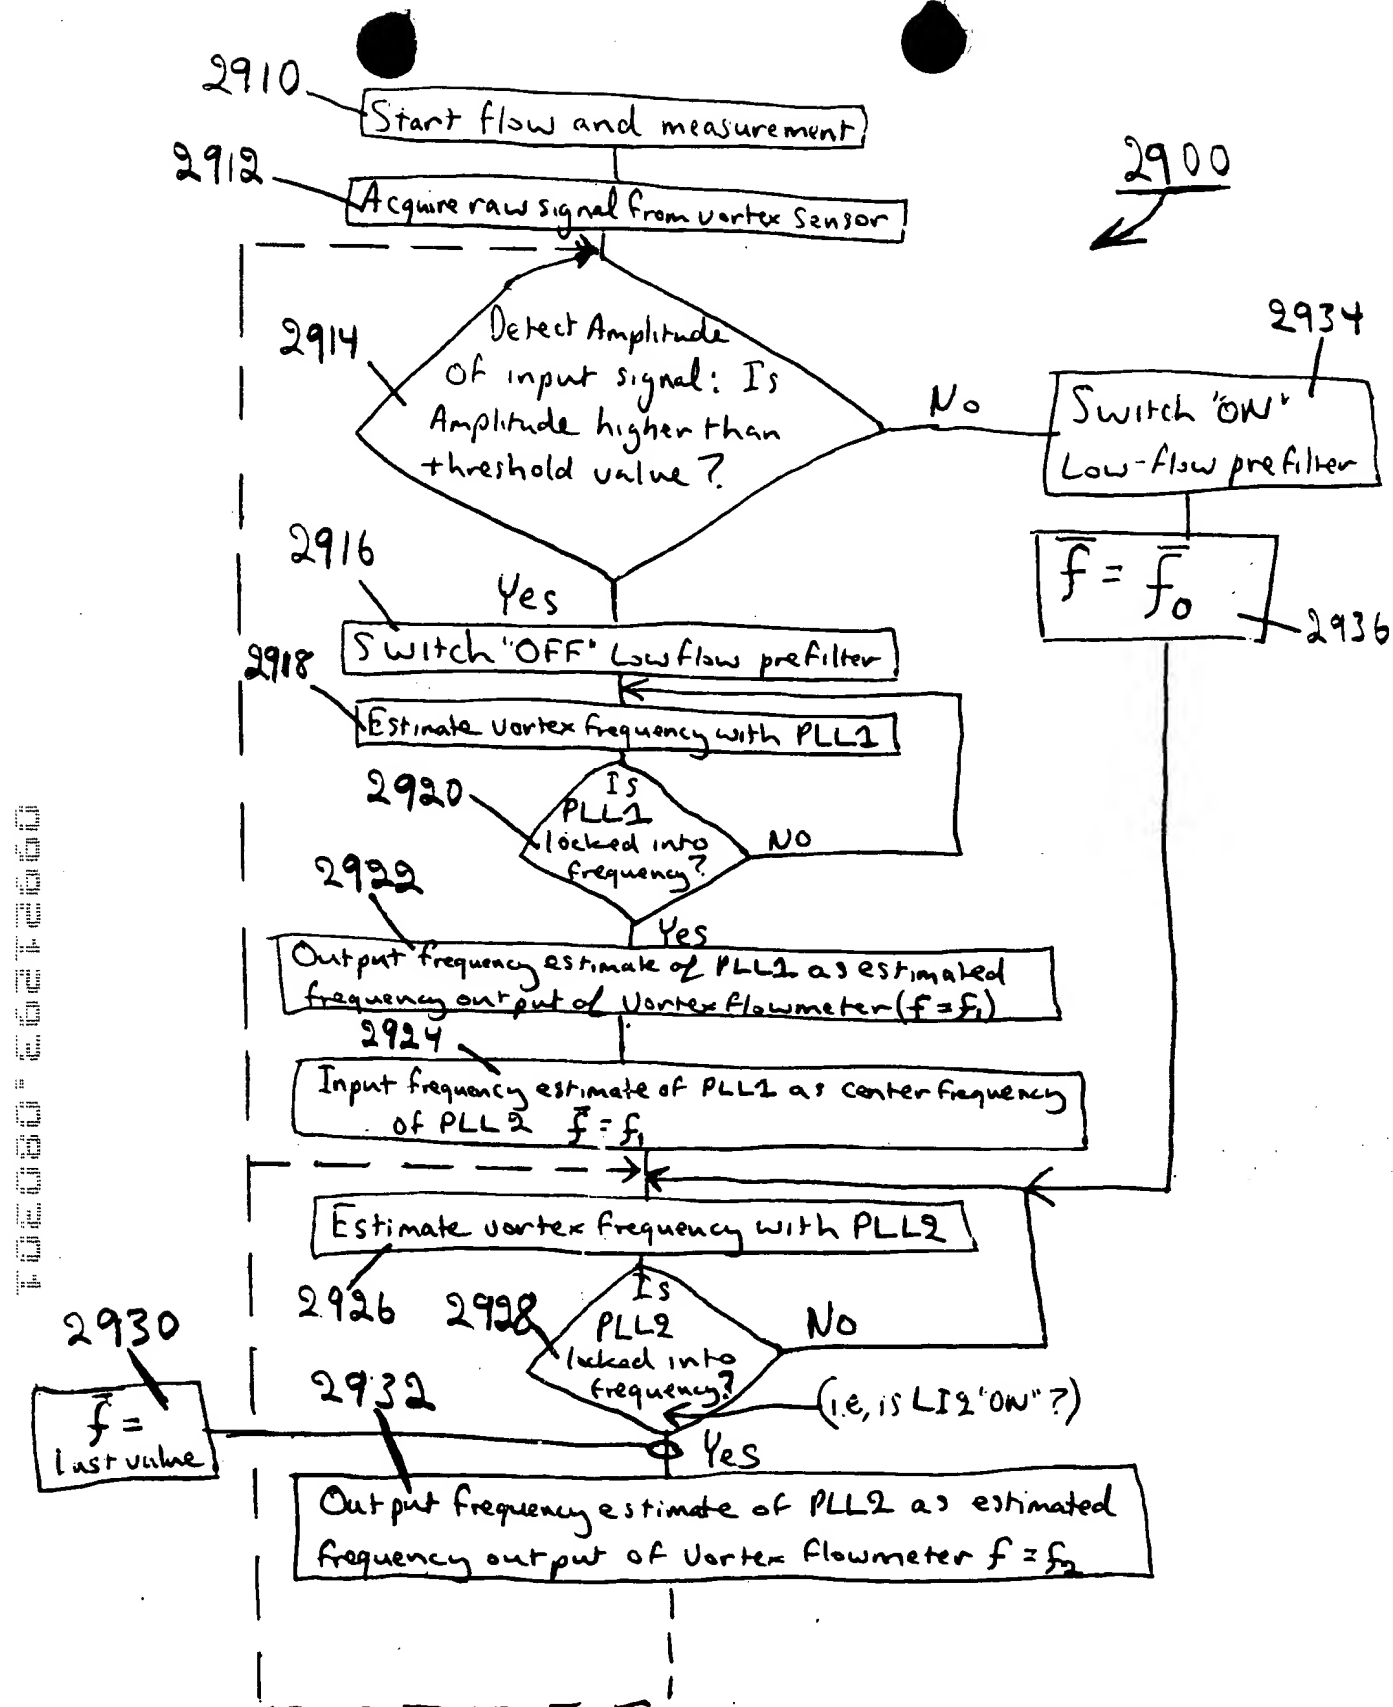 2910
Start flow and measurement
2912
Acquire raw signal from vortex sensor
2900
2914
Detect Amplitude
Of input signal: Is
Amplitude higher than
threshold value?
No
2934
Switch "ON"
Low-flow prefilter
f̅ = f̅₀
2936
Yes
2916
Switch "OFF" Low flow prefilter
2918
Estimate vortex frequency with PLL1
2920
Is
PLL1
locked into
frequency?
NO
Yes
2922
Output frequency estimate of PLL1 as estimated
frequency output of Vortex flowmeter (f = f₁)
2924
Input frequency estimate of PLL1 as center frequency
of PLL2 f̅ = f₁
Estimate vortex frequency with PLL2
2926
2928
Is
PLL2
locked into
frequency?
No
(i.e, is LI2 "ON"?)
Yes
2930
f̅ =
last value
2932
Output frequency estimate of PLL2 as estimated
frequency output of Vortex flowmeter f = f₂
09921293.080301